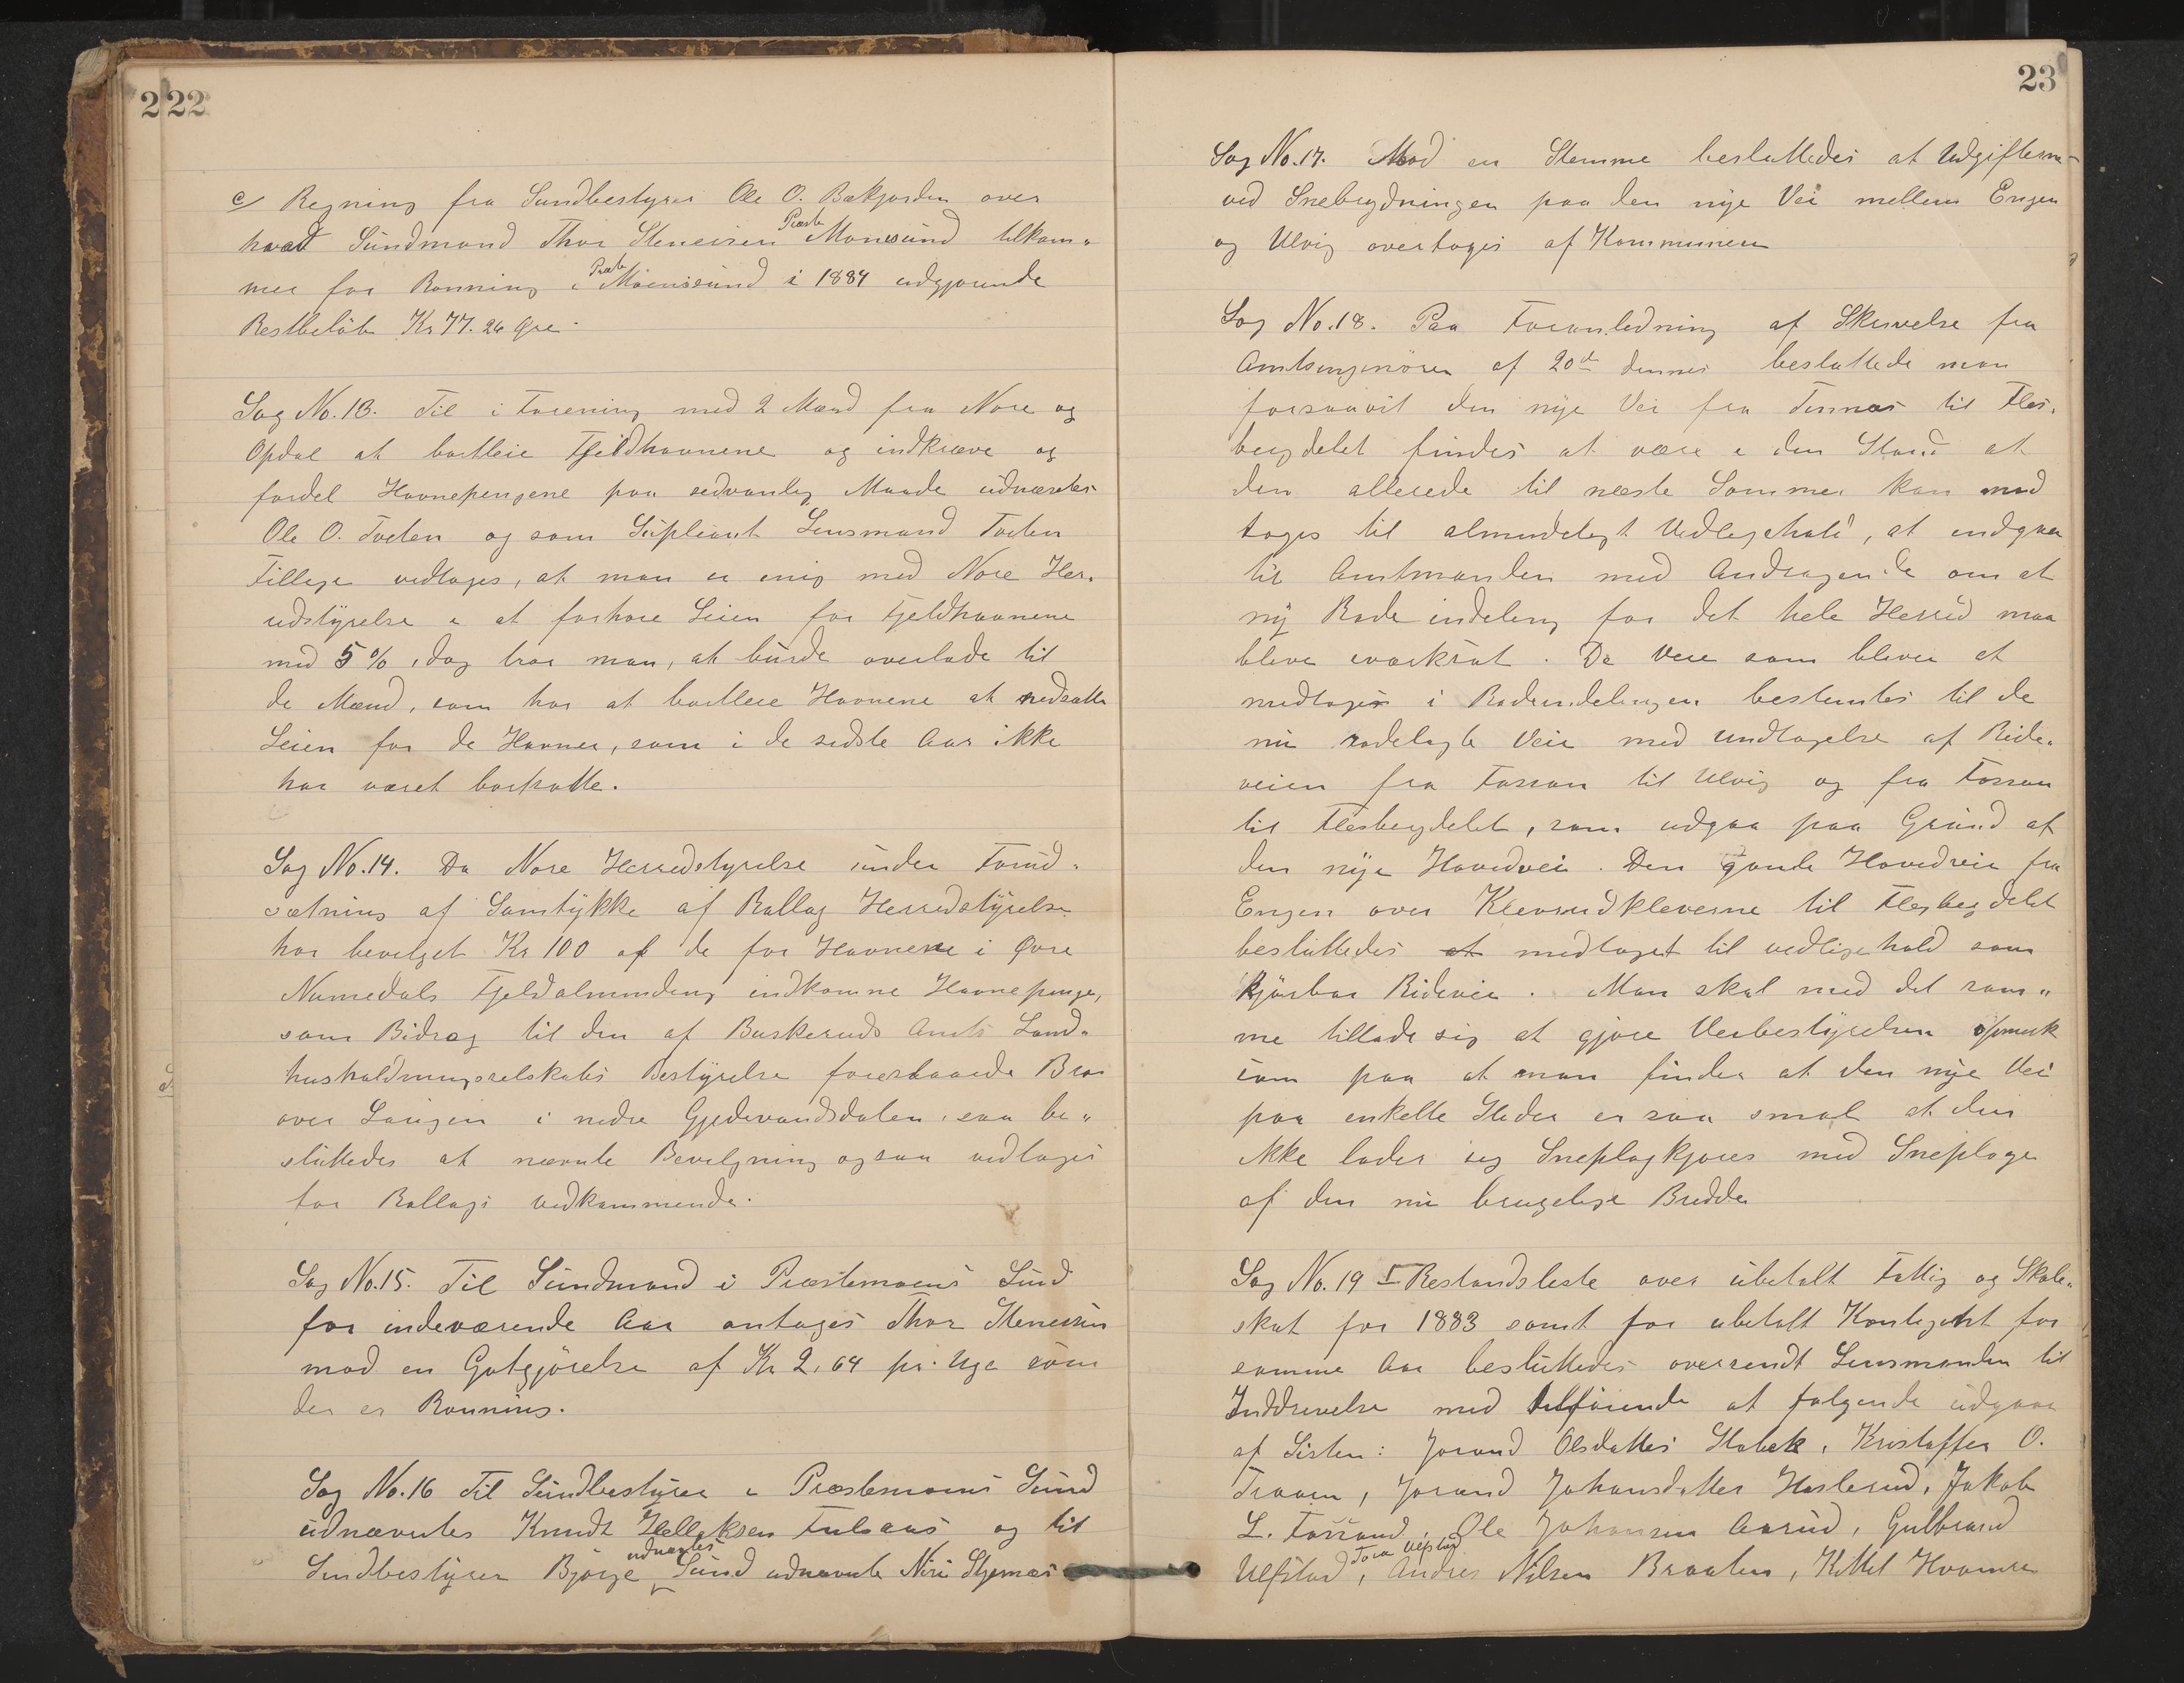 222
c/ Regning fra Sundbestyrer Ole O. Bækjorden over
hvad Sundmand Thor Steneisen Præste Monesund tilkom-
mer for Ronning i Præste Moenssund i 1884 udgjørende
Restbeløb Kr 77.26 Øre.
Sag No. 13. Til i Forening med 2 Mænd fra Nore og
Opdal at bortleie Fjeldhavnene og indkræve og
fordel Havnepengene paa sedvanlig Maade udnævntes
Ole O. Tveten og som Supleant Lensmand Tveten
Tillige vedtoges, at man er enig med Nore Her-
udstyrelse i at forhøie Leien for Fjeldhavnene
med 5 %, dog tror man, at burde overlade til
de Mænd, som har at bortleie Havnene at nedsætte
Leien for de Havner, som i de sidste Aar ikke
har været bortsatte.
Sag No. 14. Da Nore Herredstyrelse under Forud-
sætning af Samtykke af Rollag Herredstyrelse
har bevilget Kr 100 af de for Havnene i Øvre
Numedals Fjeldalmending indkomne Havnepenge,
som Bidrag til den af Buskeruds Amts Land-
husholdningsselskabs Bestyrelse foreslaaede Bro
over Laugen i nedre Gjedevandsdalen, saa be-
sluttedes at nævnte Bevilgning ogsaa vedtoges
for Rollags vedkommende.
Sag No. 15. Til Sundmand i Præstemoens Sund
for indeværende Aar antages Thor Steneisen
mod en Godtgjørelse af Kr 2,64 pr. Uge som
der er Ronning.
Sag No. 16 Til Sundbestyrer i Præstemoens Sund
udnævntes Knudt Helleksen Fulsaas og til
Sundbestyrer Bjørge udnævntes Sund udnævnte Niri Stjernæs
23
Sag No. 17. Mod en Stemme besluttedes at Udgifterne
ved Snebrydningen paa den nye Vei mellem Engen
og Ulvig overtages af Kommunen
Sag No. 18. Paa Foranledning af Skrivelse fra
Amtsingeniøren af 20de dennes besluttede man
forsaavidt den nye Vei fra Tunnæs til Fles-
bergdelet findes at være i den Stand at
den allerede til næste Sommer kan mod
tages til almindeligt Vedligehold, at indgaa
til Amtmanden med Andragende om at
ny Rode indeling for det hele Herred maa
blive iværksat. De Veie som bliver at
medtages i Rodeindelingen bestemtes til de
nu rodelagte Veie med Undtagelse af Ride-
veien fra Fossan til Ulvig og fra Fossan
til Flesbergdelet, som udgaa paa Grund af
den nye Hovedvei. Den gamle Hovedveie fra
Engen over Klevrudkleverne til Flesbergdelet
besluttedes at medtaget til vedligehold som
kjørbar Ridevei. Man skal med det sam-
me tillade sig at gjøre Veibestyrelsen opmerk
som paa at man finder at den nye Vei
paa enkelte Steder er saa smal at den
ikke lader sig Sneplogkjøres med Sneploge
af den nu brugelige Bredde
Sag No. 19 I Restandsliste over ubetalt Fattig og Skole-
skat for 1883 samt for ubetalt Kontigent for
samme Aar besluttedes oversendt Lensmanden til
Inddrivelse med tilføiende at følgende udgaar
af Listen: Jorand Olsdatter Stabæk, Kristoffer O.
Traaen, Jorand Johansdatter Haslerud, Jakob
L. Fossand, Ole Johansen Aasrud, Gulbrand
Ulfstad, Tora Ulfstad Andres Nilsen Braaten, Kittel Hvamen